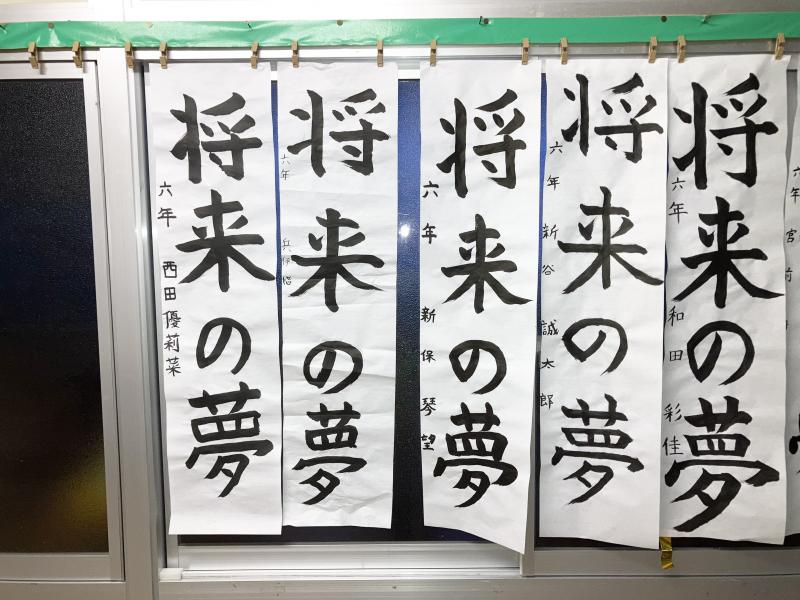 六年 宮前
将来の夢
六年 和田 彩佳
将来の夢
六年 新谷 誠太郎
将来の夢
六年 新保琴望
将来の夢
六年
将来の夢
六年 西田優莉菜